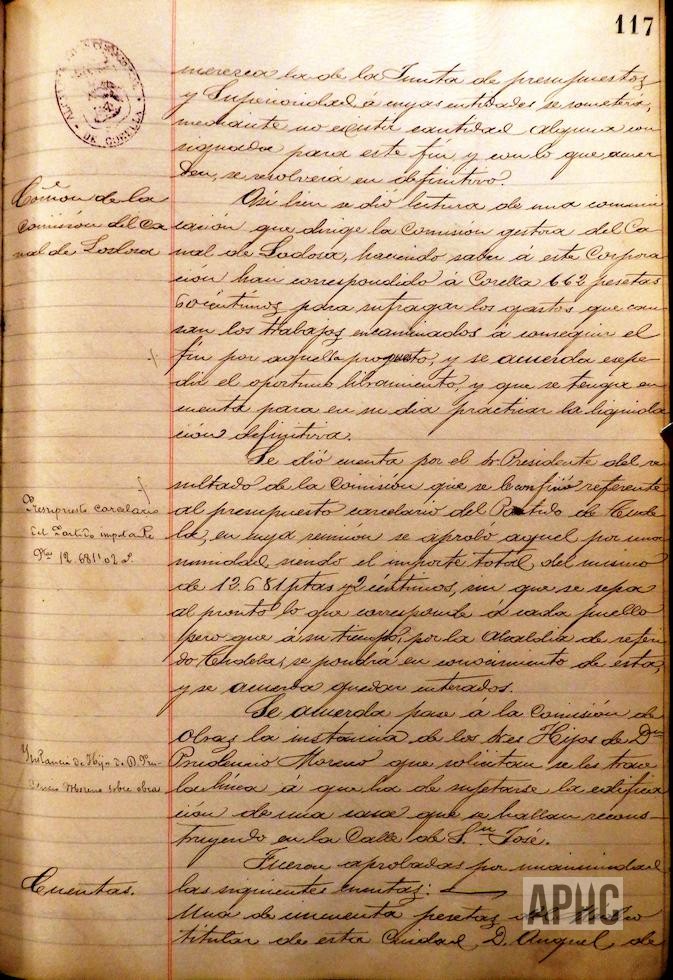 117
merezca la de la Junta de presupuestos
y Superioridad á cuyas entidades se someterá,
mediante no existir cantidad alguna con
signada para este fin y con lo que acuer
den, se resolverá en definitivo.
Comon de la
Comisión del Ca
nal de Lodosa
Asi bien se dió lectura de una comuni
cación que dirige la Comisión gestora del Ca
nal de Lodosa, haciendo saber á este Corpora
ción han correspondido á Corella 662 pesetas
60 céntimos para sufragar los gastos que cau
san los trabajos encaminados á conseguir el
fin por aquella propuesto, y se acuerda espe
dir el oportuno libramiento, y que se tenga en
cuenta para en su dia practicar la liquida
ción definitiva.
Presupuesto carcelario
del Partido importante
Ptas 12.681'02
Se dió cuenta por el Sr Presidente del re
sultado de la Comisión que se le confirió referente
al presupuesto carcelario del Partido de Tude
la, en cuya reunión se aprobó aquel por una
nimidad, siendo el importe total del mismo
de 12.681 ptas y 2 céntimos, sin que se sepa
al pronto lo que corresponde á cada pueblo
pero que á su tiempo, por la Alcaldía de referi
do Tudela, se pondrá en conocimiento de esta,
y se acuerda quedar enterados.
Instancia de Hijos de D. Pru
dencio Moreno sobre obra
Se acuerda pase á la Comisión de
obras la instancia de los tres Hijos de Dn
Prudencio Moreno que solicitan se les trace
la línea á que ha de sujetarse la edifica
ción de una casa que se hallan recons
truyendo en la Calle de Sn José.
Cuentas.
Fueron aprobadas por unanimidad
las siguientes cuentas:
Una de cincuenta pesetas al Médico
titular de esta Ciudad, D. Angel de
DE CORELLA
APHC